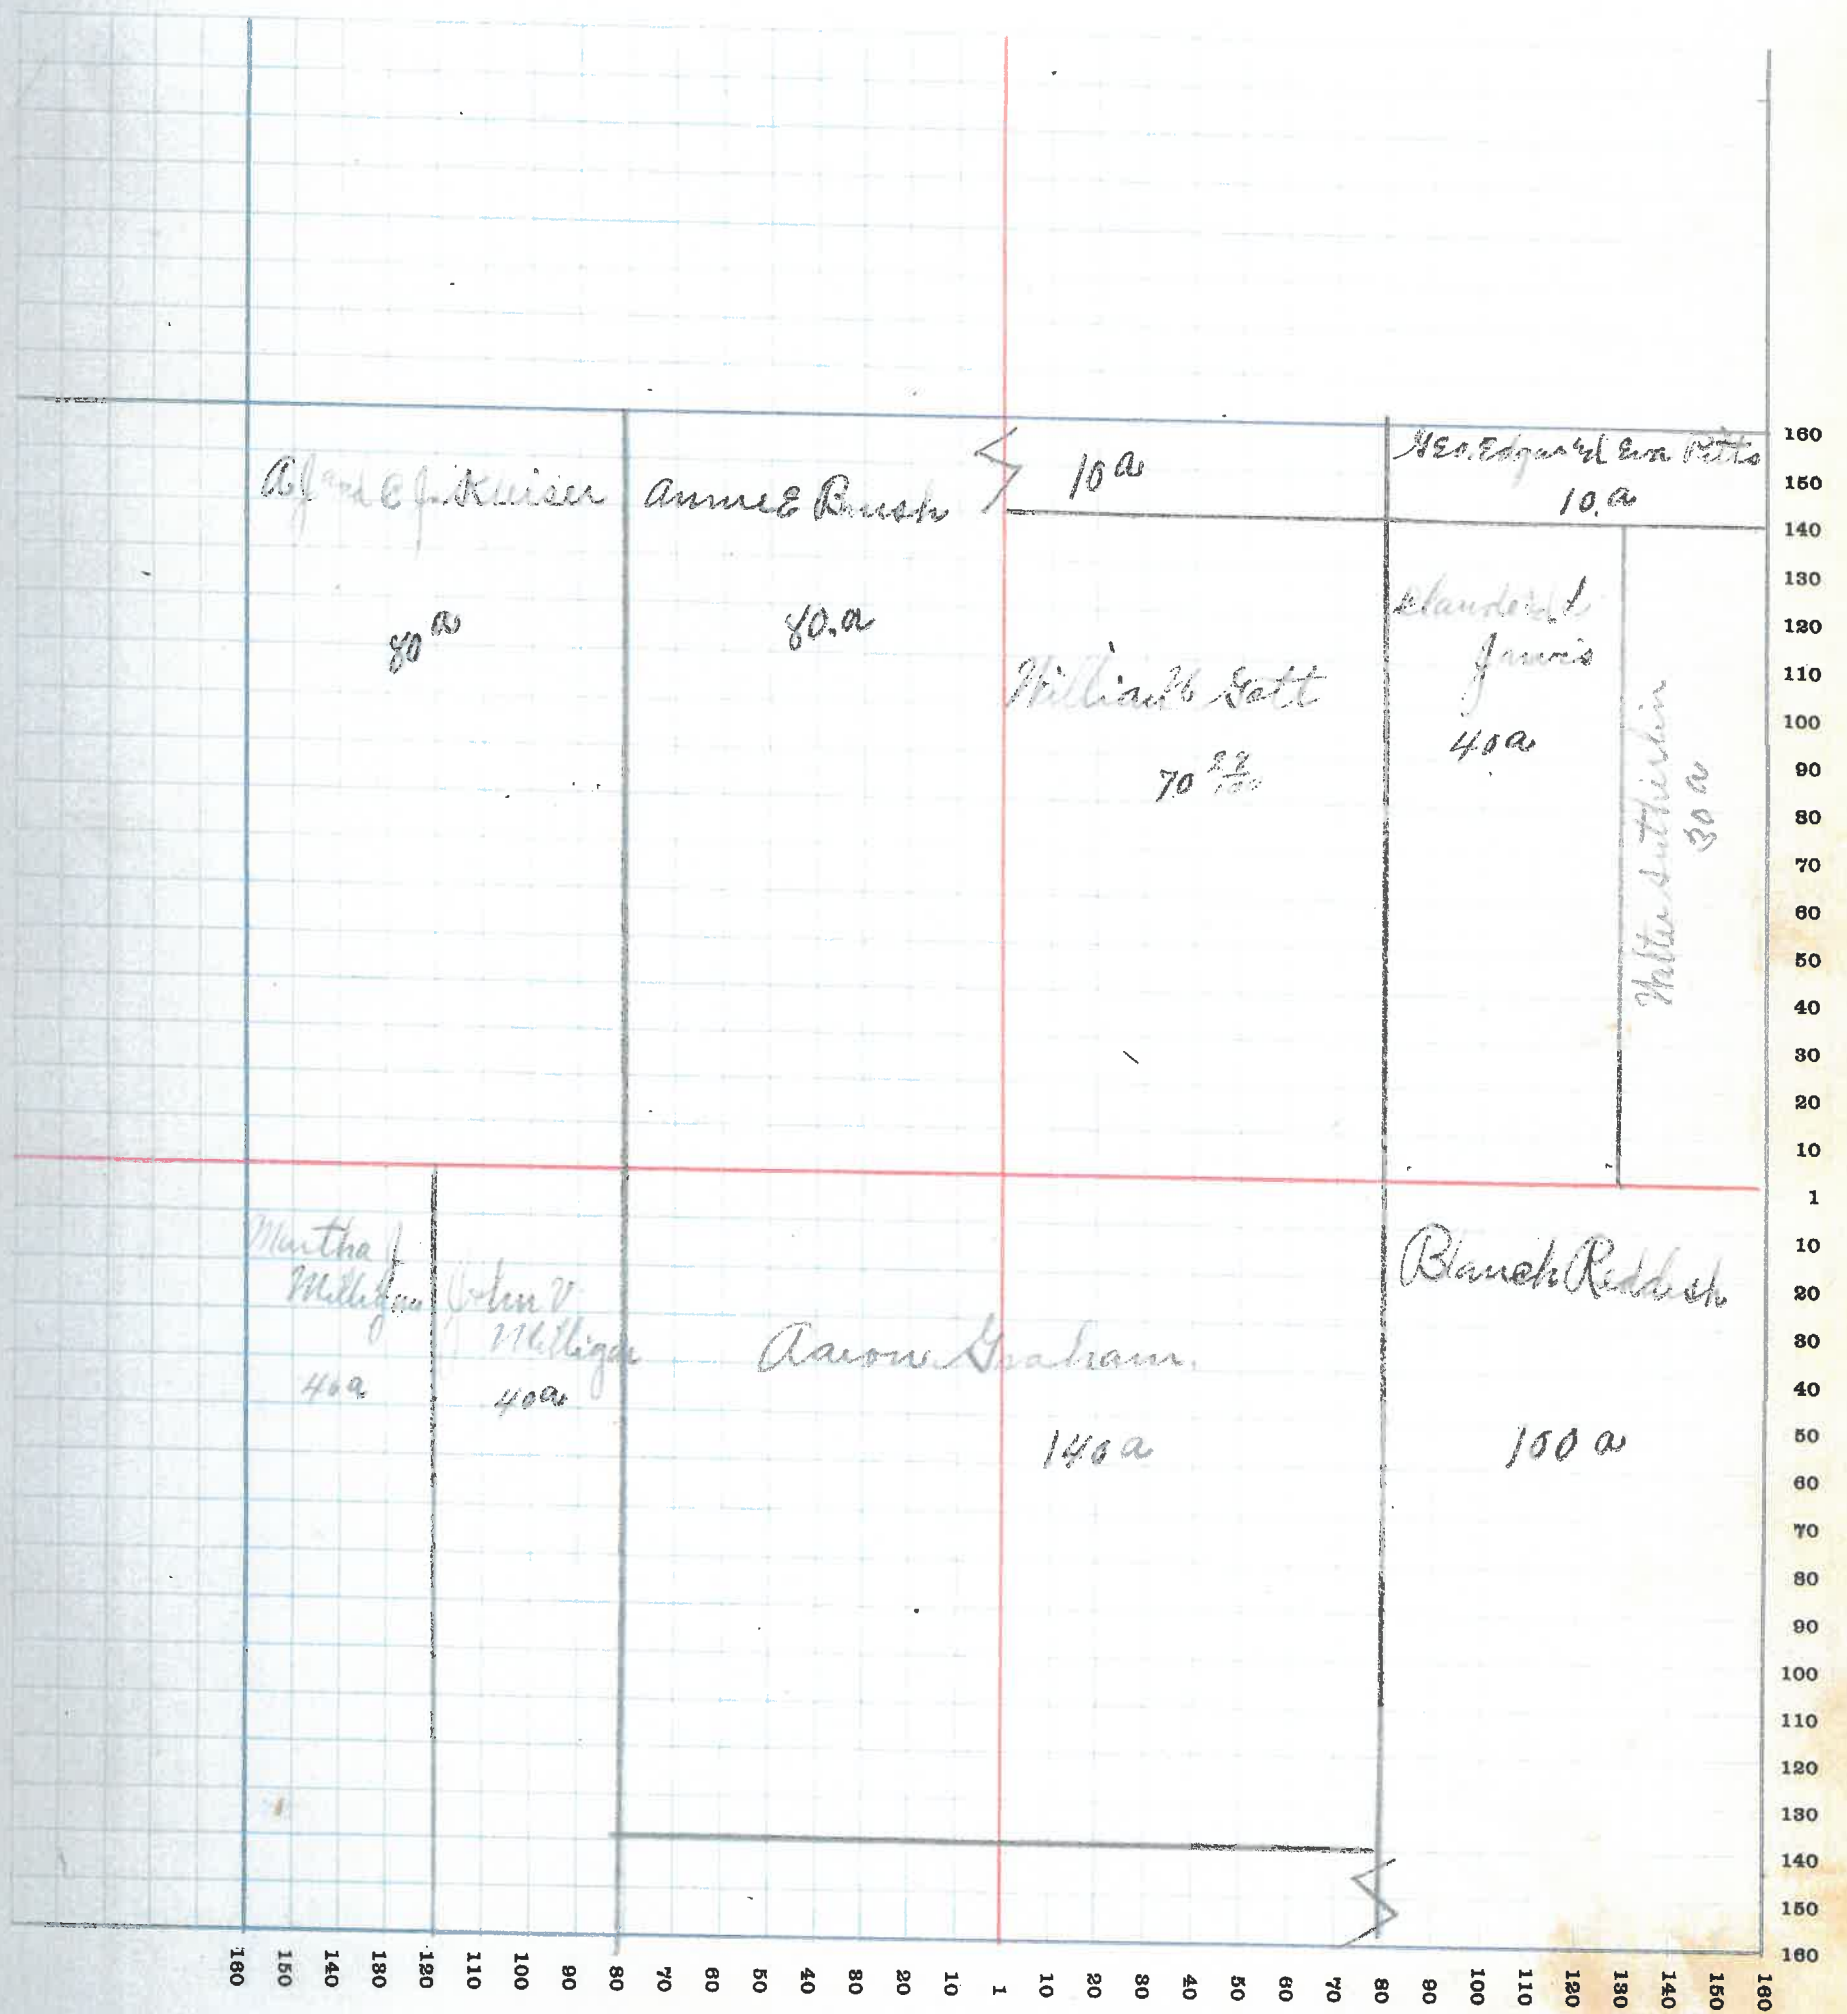 A J and C J Keiser
80 a
Annie E Brush
80. a
10 a
Geo. Edgar & Eva Pitts
10. a
William H Gott
70 27/100
Jarvis
40 a
Walter Sutherlin
30 a
Martha J
Milligan
40 a
John V
Milligan
40 a
Aaron Graham.
140 a
Blanch Reddish
100 a
160
150
140
130
120
110
100
90
80
70
60
50
40
30
20
10
1
10
20
30
40
50
60
70
80
90
100
110
120
130
140
150
160
160
150
140
130
120
110
100
90
80
70
60
50
40
30
20
10
1
10
20
30
40
50
60
70
80
90
100
110
120
130
140
150
160